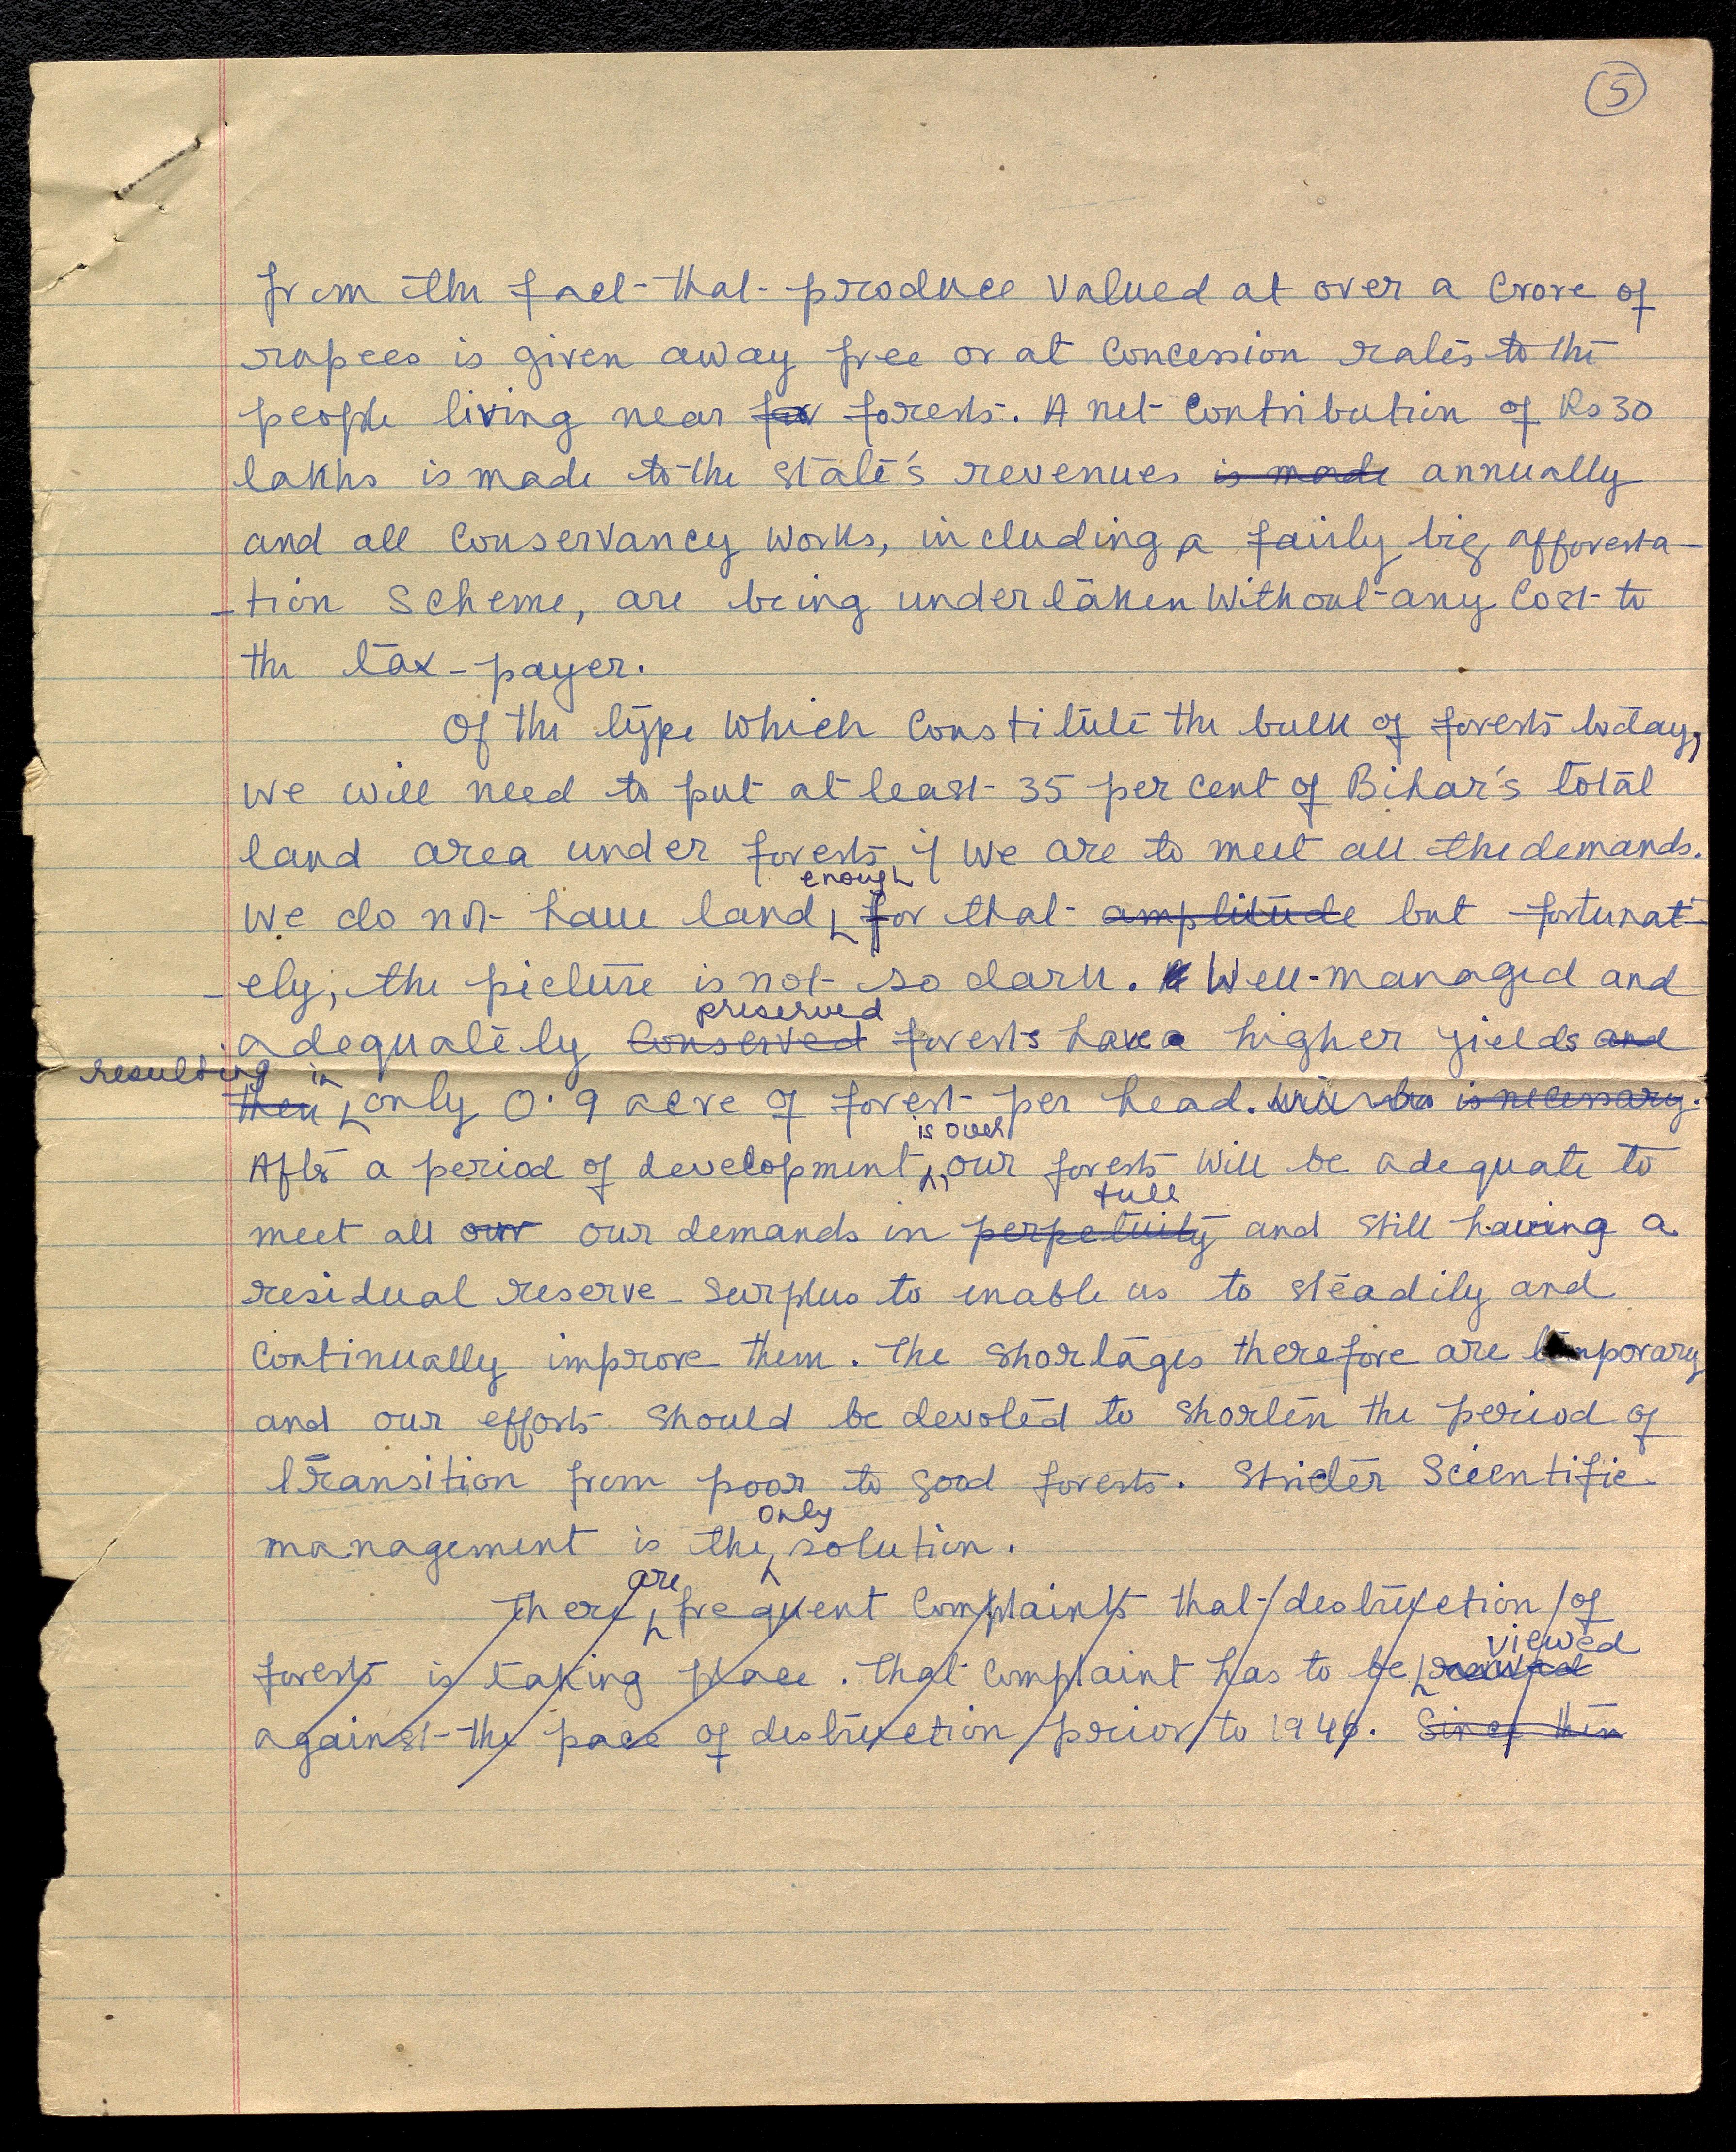 5
from the fact that produce valued at over a crore of
rupees is given away free or at concession rates to the
people living near for forests. A net contribution of Rs 30
lakhs is made to the state's revenues is made annually
and all conservancy works, including a fairly big afforesta-
-tion scheme, are being undertaken without any cost to
the tax-payer.
Of the type which constitute the bulk of forests today,
we will need to put at least 35 per cent of Bihar's total
land area under forests if we are to meet all the demands.
enough
we do not have land for that amplitude but fortunat-
-ely, the picture is not so dark. Well-managed and
preserved
adequately conserved forests have a higher yields and
resulting in
then only 0.9 acre of forest per head. will be is necessary.
is over
After a period of development, our forests will be adequate to
full
meet all our our demands in perpetuity and still having a
residual reserve-surplus to enable us to steadily and
continually improve them. The shortages therefore are temporary
and our efforts should be devoted to shorten the period of
transition from poor to good forests. Stricter Scientific
only
management is the solution.
are
There frequent complaints that destruction of
viewed
forests is taking place. That complaint has to be
against the pace of destruction prior to 1946. Since then